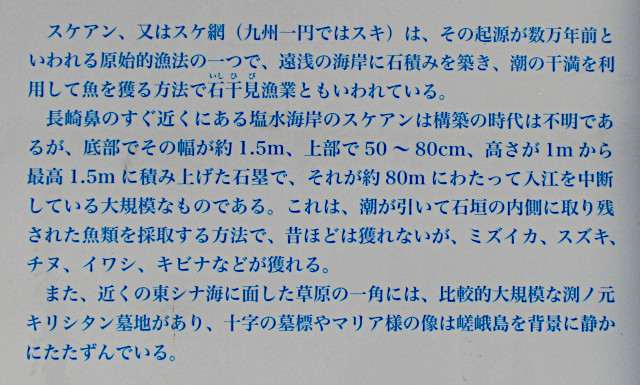 スケアン、又はスケ網（九州一円ではスキ）は、その起源が数万年前と
いわれる原始的漁法の一つで、遠浅の海岸に石積みを築き、潮の干満を利
用して魚を獲る方法で石干見漁業ともいわれている。
いしひび
長崎鼻のすぐ近くにある塩水海岸のスケアンは構築の時代は不明であ
るが、底部でその幅が約1.5m、上部で50～80cm、高さが1mから
最高1.5mに積み上げた石塁で、それが約80mにわたって入江を中断
している大規模なものである。これは、潮が引いて石垣の内側に取り残
された魚類を採取する方法で、昔ほどは獲れないが、ミズイカ、スズキ、
チヌ、イワシ、キビナなどが獲れる。
また、近くの東シナ海に面した草原の一角には、比較的大規模な渕ノ元
キリシタン墓地があり、十字の墓標やマリア様の像は嵯峨島を背景に静か
にたたずんでいる。